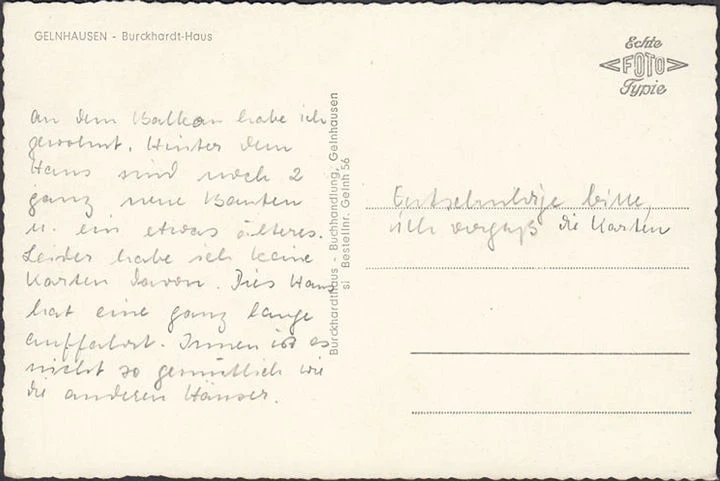 GELNHAUSEN - Burckhardt-Haus
Echte
FOTO
Typie
an dem Balkon habe ich
gewohnt. Hinter dem
Haus sind noch 2
ganz neue Bauten
u. ein etwas älteres.
Leider habe ich keine
Karten davon. Dies Haus
hat eine ganz lange
auffahrt. Innen ist es
nicht so gemütlich wie
die anderen Häuser.
Burckhardthaus - Buchhandlung, Gelnhausen
si Bestellnr. Gelnh 56
Entschuldige bitte,
ich vergaß die Karten